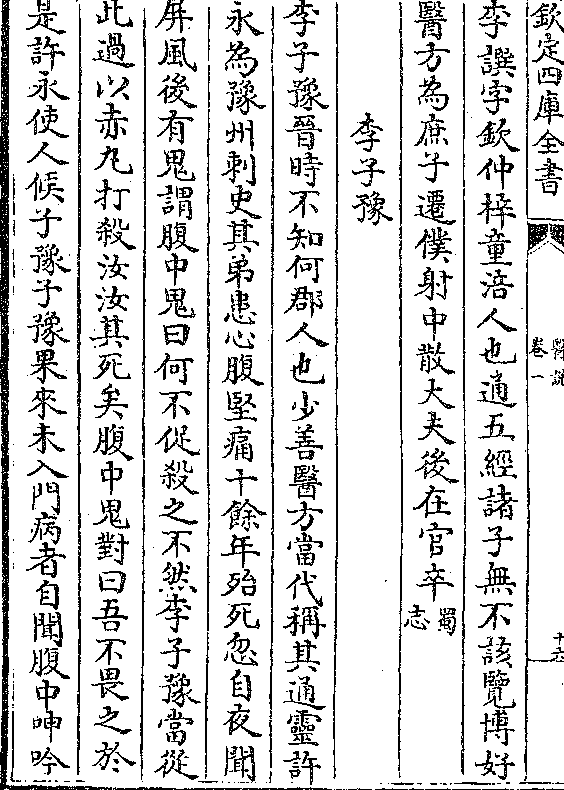 欽定四庫全書
醫說
卷一
十六
李譔字欽仲梓童涪人也通五經諸子無不該覽博好
醫方為庶子遷僕射中散大夫後在官卒蜀志
李子豫
李子豫晉時不知何郡人也少善醫方當代稱其通靈許
永為豫州刺史其弟患心腹堅痛十餘年殆死忽自夜聞
屏風後有鬼謂腹中鬼曰何不促殺之不然李子豫當從
此過以赤丸打殺汝汝其死矣腹中鬼對曰吾不畏之於
是許永使人候子豫子豫果來未入門病者自聞腹中呻吟